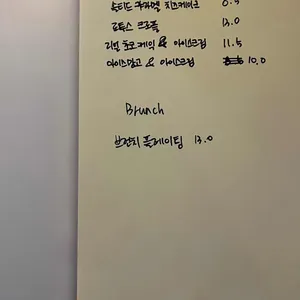 솔티드 카라멜 치즈케이크 8.5
로투스 크로플 13.0
리얼 초코 케익 & 아이스크림 11.5
아이스당고 & 아이스크림 10.0
Brunch
브런치 플레이팅 13.0